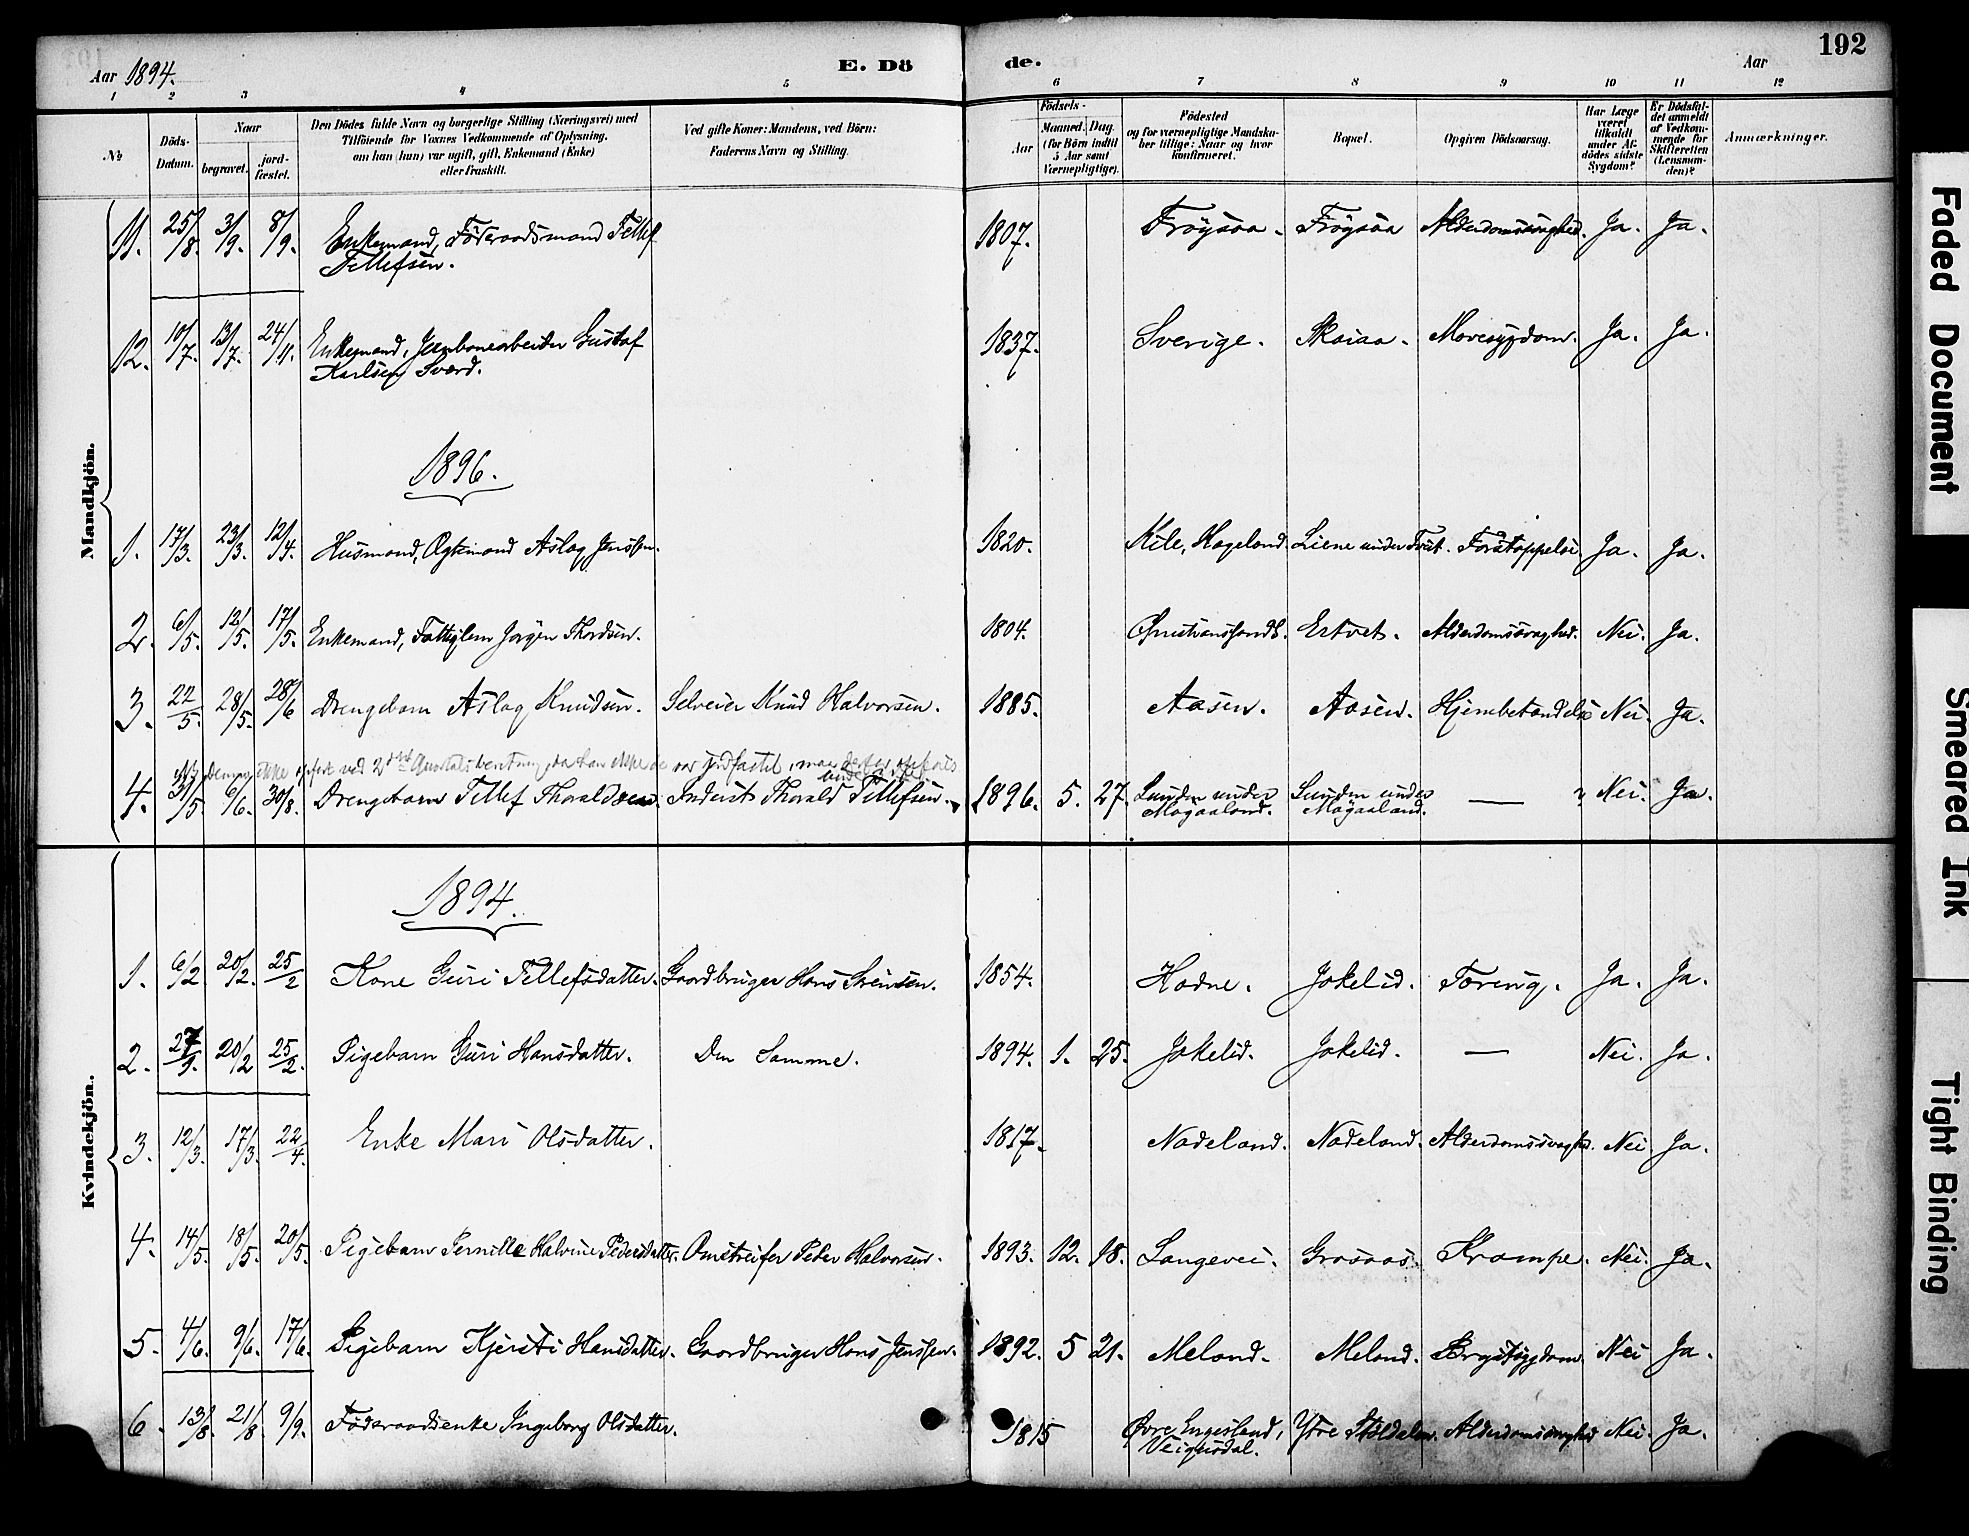 Aar 1894. E. Dö
de. Aar 192
1 2 3 4 5 6 7 8 9 10 11 12
№ Döds-Datum. Naar begravet. jordfæstet. Den Dödes fulde Navn og borgerlige Stilling (Næringsvei) med Tilföiende for Voxnes Vedkommende af Oplysning, om han (hun) var ugift, gift, Enkemand (Enke) eller fraskilt. Ved gifte Koner: Mandens, ved Börn: Faderens Navn og Stilling. Födsels- Aar Maaned. Dag (for Börn indtil 5 Aar samt Værnepligtige). Födested og for værnepligtige Mandskaber tillige: Naar og hvor konfirmeret. Bopæl. Opgiven Dödsaarsag. Har Læge været tilkaldt under Afdödes sidste Sygdom? Er Dödsfaldet anmeldt af Vedkommende for Skifteretten (Lensmanden)? Anmærkninger.
Mandkjön.
11. 25/8. 3/9. 8/9. Enkemand, Föderaadsmand Tellef 1807. Fröysaa. Fröysaa Alderdomssvaghed. Ja. Ja.
Tellefsen.
12. 10/7. 13/7. 24/11. Enkemand, Jernbanearbeider Gustaf 1837. Sverige. Skaiaa. Mavesygdom. Ja. Ja.
Karlsen Sværd.
1896.
1. 17/3. 23/3. 12/4. Husmand, Ægtemand Aslag Jenssen. 1820. Kile, Hægeland. Liene under Tveit. Forstoppelse Ja. Ja.
2. 6/5. 12/5. 17/5. Enkemand, Fattiglem Jörgen Thordsen. 1804. Christianssand. Ertvet. Alderdomssvaghed. Nei. Ja.
3. 22/5. 28/5. 28/6 Drengebarn Aslag Knudsen. Selveier Knud Halvorsen. 1885. Aasen. Aasen. Hjernebetændelse Nei. Ja.
ikke opfört ved 2det Quartals beretning, da han ikke var jordfæstet, maa derfor opföres
4. 31/5. 6/6. 30/8. Drengebarn Tellef Thoraldsen. Inderst Thorald Tellefsen. 1896. 5. 27. Lunden under Lunden under — " Nei. Ja.
Mögaaland. Mögaaland.
Kvindekjön.
1894.
1. 6/2. 20/2. 25/2 Kone Guri Tellefsdatter. Gaardbruger Hans Sveinsen. 1854. Hodne. Jokelid. Tæring. Ja. Ja.
2. 20/2 25/2. Pigebarn Guri Hansdatter. Den Samme. 1894. 1. 25. Jokelid. Jokelid. — Nei. Ja.
3. 12/3. 17/3. 22/4. Enke Mari Olsdatter. 1817. Nadeland. Nadeland. Alderdomssvaghd. Nei Ja.
4. 14/5. 18/5. 20/5. Pigebarn Pernille Halvine Pedersdatter. Omstreifer Peder Halvorsen. 1893. 12. 18. Langevei. Grosaas. Krampe. Nei. Ja.
5. 4/6. 9/6. 17/6. Pigebarn Kjersti Hansdatter. Gaardbruger Hans Jenssen. 1892. 5 21. Meland. Meland. Brystsygdom. Nei Ja.
6. 13/8. 21/8. 9/9. Föderaadsenke Ingeborg Olsdatter. 1815 Övre Engesland, Ytre Stöldalen. Alderdomssvaghed Nei. Ja.
Veigusdal.
Faded Document
Smeared Ink
Tight Binding